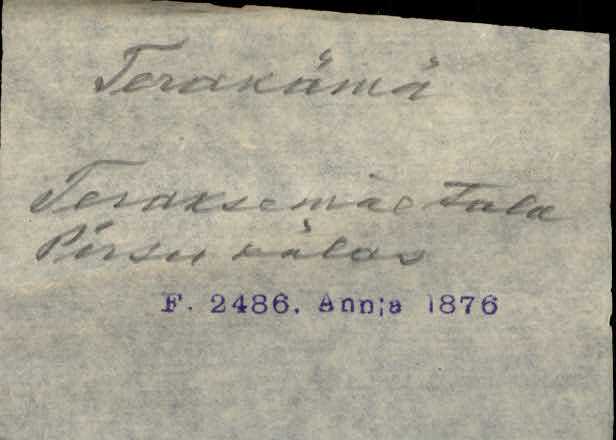 Terakämä
Teraksemäe talu
Pirsu külas
F. 2486. Annja 1876